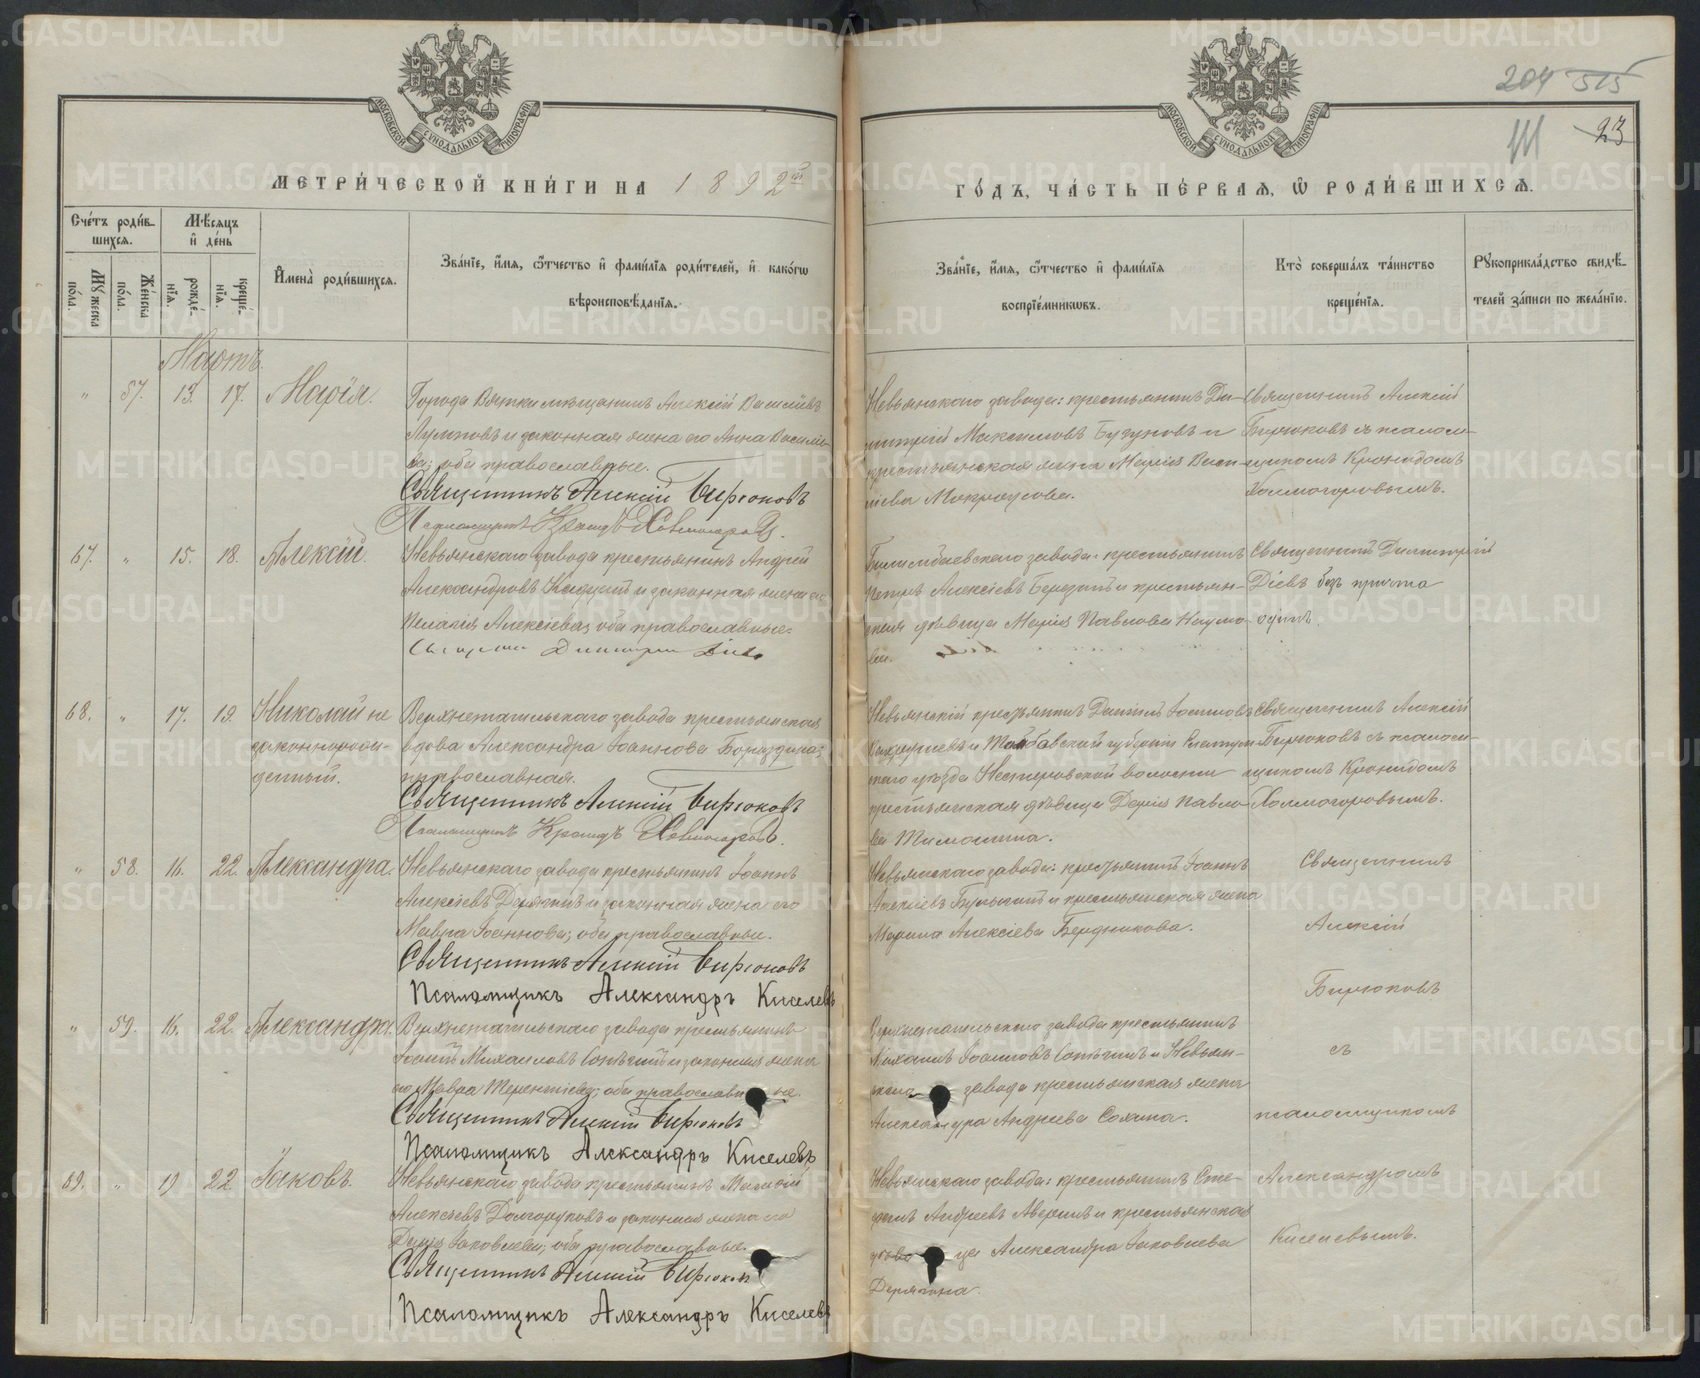 204 515
23
МОСКОВСКОЙ СѴНОДАЛЬНОЙ ТИПОГРАФІИ
МОСКОВСКОЙ СѴНОДАЛЬНОЙ ТИПОГРАФІИ
МЕТРИ́ЧЕСКОЙ КНИ́ГИ НА 1892й
ГО́ДЪ, ЧА́СТЬ ПЕ́РВАЯ, Ѡ РОДИ́ВШИХСЯ.
Сче́тъ роди́вшихся.
Мѣ́сяцъ и де́нь
Имена̀ роди́вшихся.
Зва́нїе, и́мя, ѻ́тчество и фами́лїя роди́телей, и како́гѡ вѣроисповѣ́данїя.
Мꙋ́жеска по́ла.
Же́нска по́ла.
рожде́нїя.
креще́нїя.
Зва́нїе, и́мя, ѻ́тчество и фами́лїя воспрїе́мникѡвъ.
Кто̀ соверша́лъ та́инство креще́нїя.
Рꙋкоприкла́дство свидѣ́телей за́писи по жела́нїю.
Мартъ.
" 57. 13. 17. Марія.
Города Вятки мѣщанинъ Алексій Василіевъ
и законная жена его Анна Василіе-
ва; оба православные.
Священникъ Алексій Бирюковъ
Псаломщикъ Кронидъ Холмогоровъ.
Невьянскаго завода: крестьянинъ Ди-
митрій Максимовъ Бугуновъ и
крестьянская жена Марія Васи-
ліева Мокроусова.
Священникъ Алексій
Бирюковъ съ псалом-
щикомъ Кронидомъ
Холмогоровымъ.
67. " 15. 18. Алексій.
Невьянскаго завода крестьянинъ Андрей
Александровъ и законная жена его
Пелагія Алексіева; оба православные.
Священникъ Димитрій Діевъ
Билимбаевскаго завода: крестьянинъ
Петръ Алексіевъ Березинъ и крестьян-
ская дѣвица Марія Павлова Наумо-
ва.
Священникъ Димитрій
Діевъ безъ причта
одинъ.
68. " 17. 19. Николай не
законнорож-
денный.
Верхнетагильскаго завода крестьянская
вдова Александра Іоаннова
православная.
Священникъ Алексій Бирюковъ
Псаломщикъ Кронидъ Холмогоровъ.
Невьянскій крестьянинъ Даніилъ Іоанновъ
и Тамбовской губерніи
скаго уѣзда волости
крестьянская дѣвица Дарія Павло-
ва Тимошина.
Священникъ Алексій
Бирюковъ съ псалом-
щикомъ Кронидомъ
Холмогоровымъ.
" 58. 16. 22. Александра.
Невьянскаго завода крестьянинъ Іоаннъ
Алексіевъ Дерягинъ и законная жена его
Мавра Іоаннова; оба православные.
Священникъ Алексій Бирюковъ
Псаломщикъ Александръ Киселевъ
Невьянскаго завода: крестьянинъ Іоаннъ
и крестьянская жена
Марина Алексіева Бердникова.
Священникъ
Алексій
Бирюковъ
съ
псаломщикомъ
Александромъ
Киселевымъ.
" 59. 16. 22. Александра.
Верхнетагильскаго завода крестьянинъ
Іоаннъ Михаиловъ и законная жена
его Мавра Терентіева; оба православные.
Священникъ Алексій Бирюковъ
Псаломщикъ Александръ Киселевъ
Верхнетагильскаго завода крестьянинъ
Михаилъ Іоанновъ и Невьян-
скаго завода крестьянская жена
Александра Андреева Сохина.
69. " 19 22 Іаковъ.
Невьянскаго завода крестьянинъ Матѳій
Алексіевъ Долгоруковъ и законная жена его
Дарія Іаковлева; оба православные.
Священникъ Алексій Бирюковъ
Псаломщикъ Александръ Киселевъ
Невьянскаго завода: крестьянинъ Сте-
фанъ Андреевъ Аверинъ и крестьянская
дѣвица Александра Іаковлева
Дерягина.